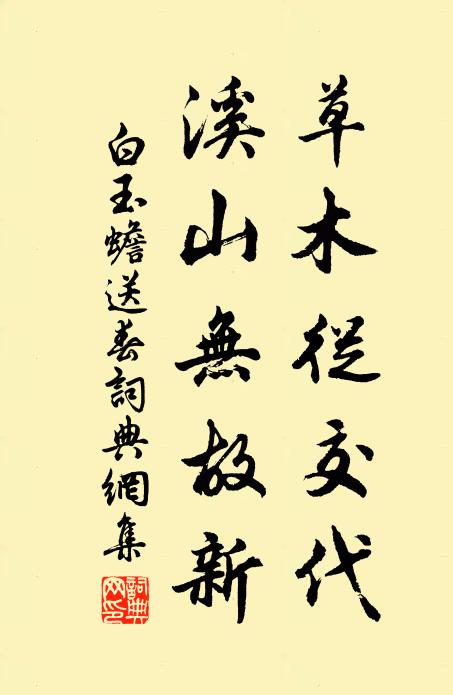 草木從交代
溪山無故新
白玉蟾送春詞典網集
詞典网印